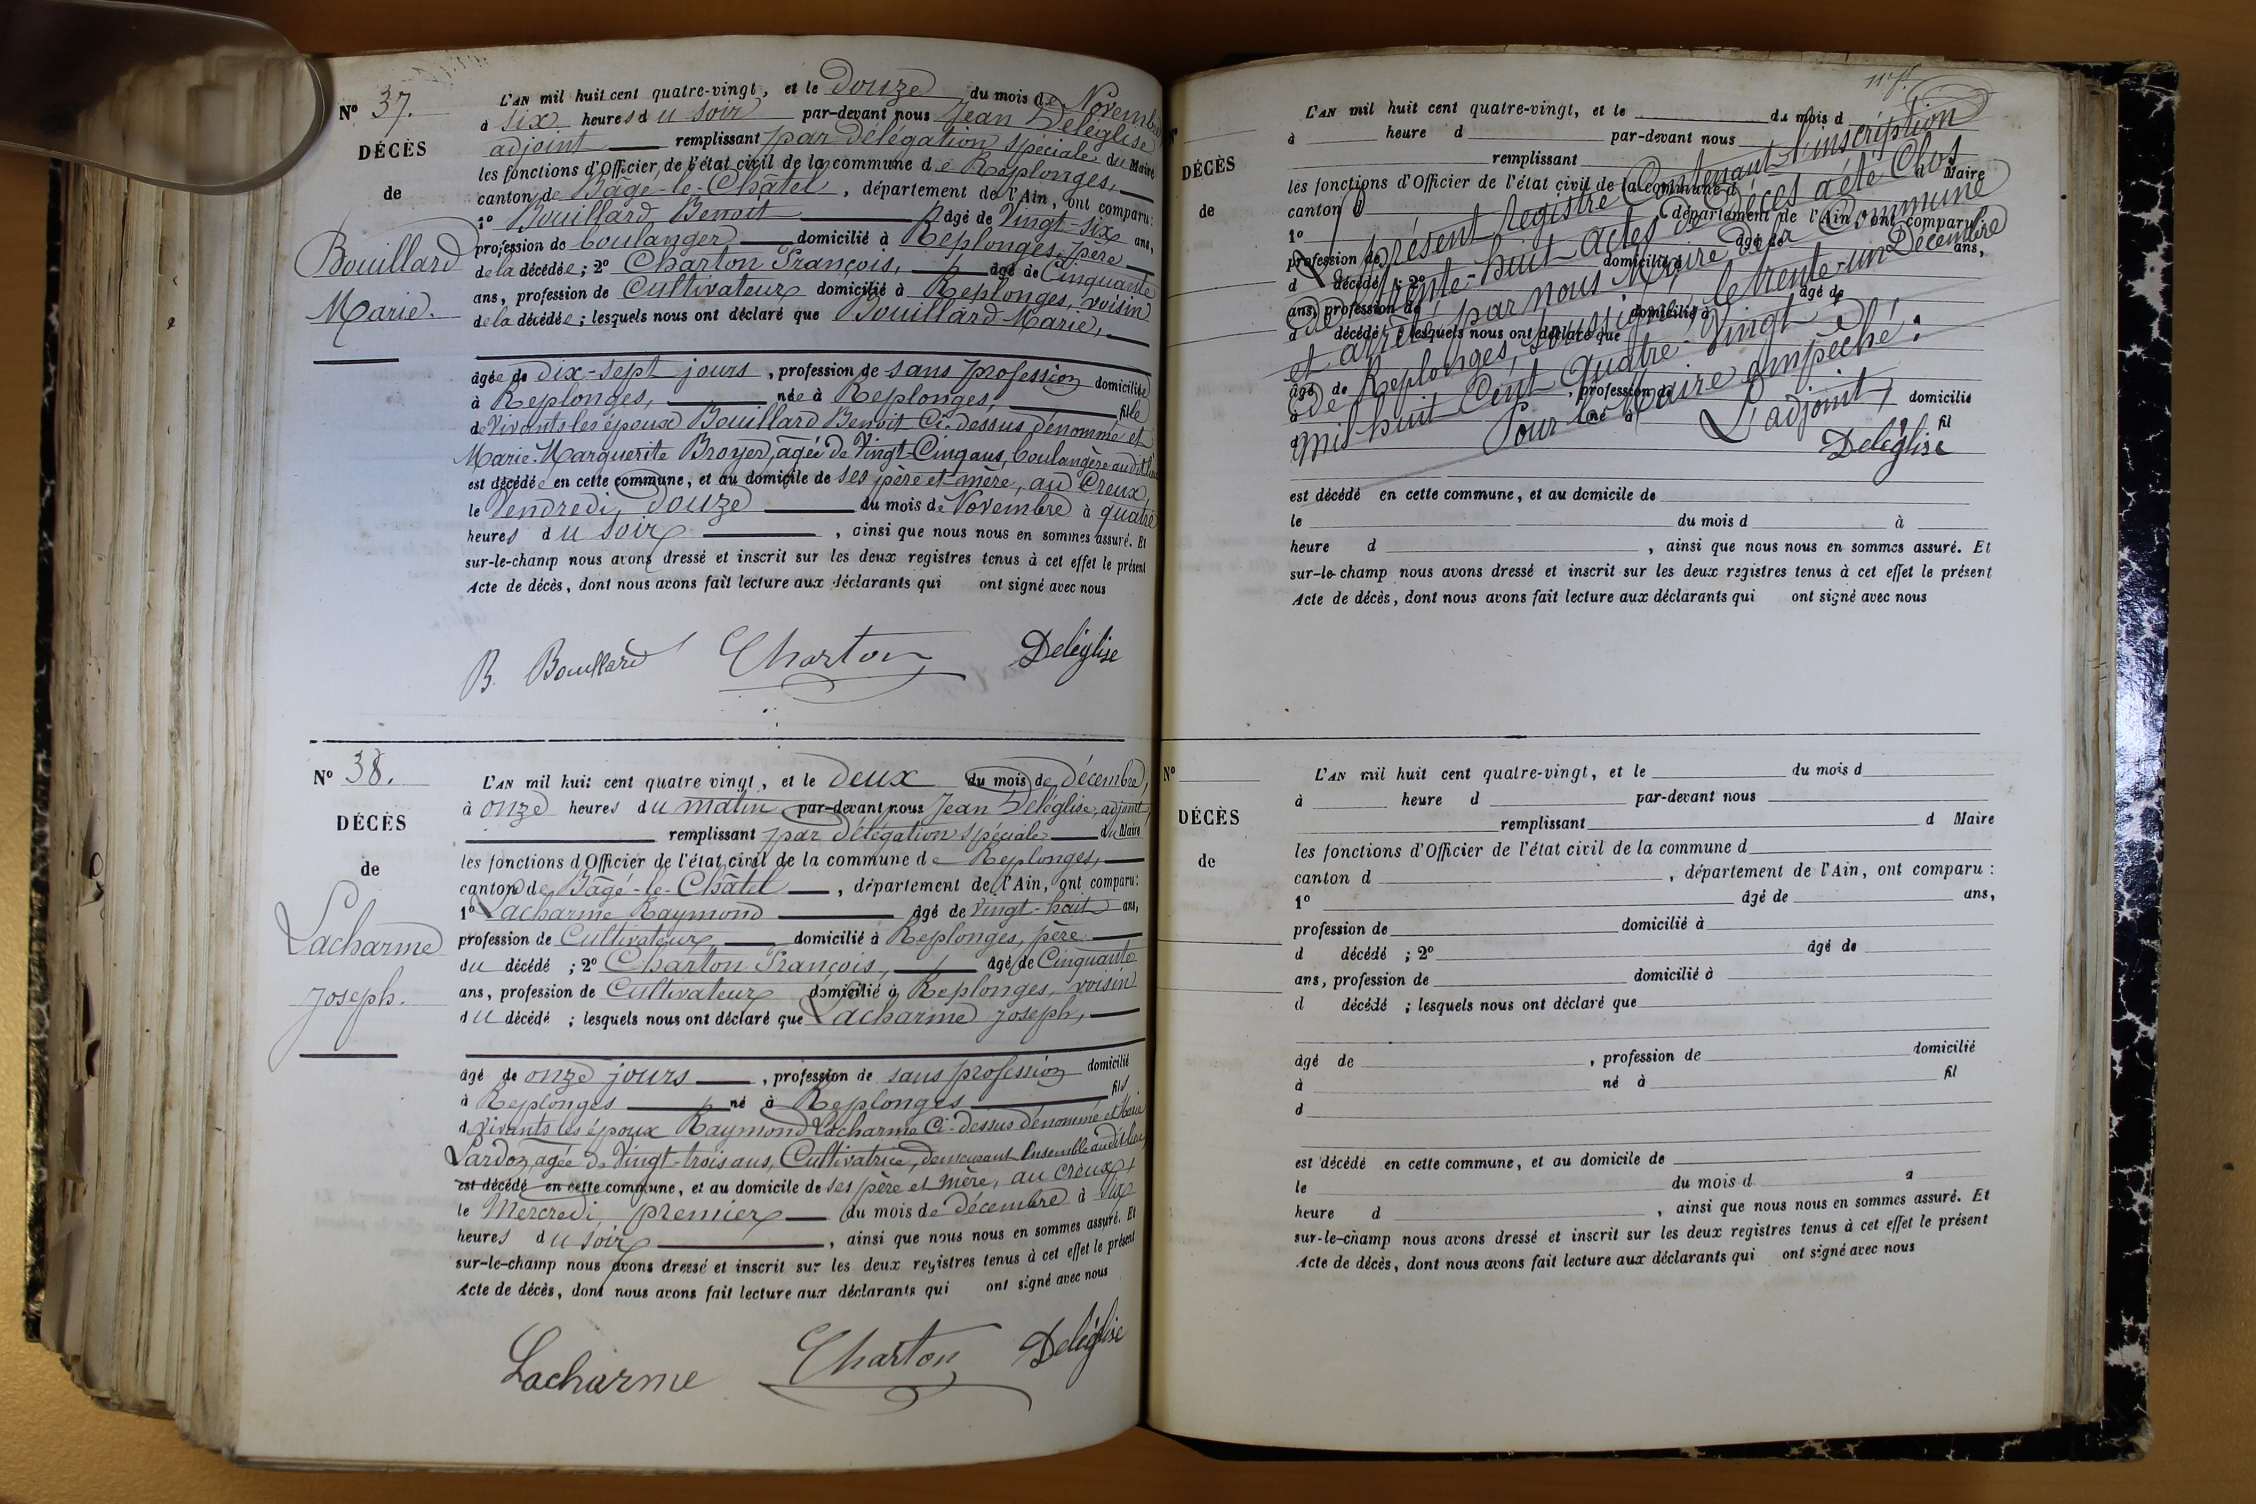 N° 37.
DÉCÈS
de
Bouillard
Marie.
L'AN mil huit cent quatre-vingt, et le douze du mois de Novembre
à six heures du soir par-devant nous Jean Deléglise
adjoint remplissant par délégation spéciale du Maire
les fonctions d'Officier de l'état civil de la commune de Replonges,
canton de Bâgé-le-Châtel, département de l'Ain, ont comparu:
1° Bouillard Benoit âgé de Vingt-six ans,
profession de boulanger domicilié à Replonges, père
de la décédée; 2° Charton François, âgé de Cinquante
ans, profession de Cultivateur domicilié à Replonges, voisin
de la décédée; lesquels nous ont déclaré que Bouillard Marie,
âgée de dix-sept jours, profession de sans profession domiciliée
à Replonges, née à Replonges, fille
de Vivants les époux Bouillard Benoit Ci-dessus dénommé et
Marie-Marguerite Broyer, âgée de Vingt-Cinq ans, boulangère audit lieu
est décédée en cette commune, et au domicile de ses père et mère, au Creux,
le Vendredi douze du mois de Novembre à quatre
heures du soir, ainsi que nous nous en sommes assuré. Et
sur-le-champ nous avons dressé et inscrit sur les deux registres tenus à cet effet le présent
Acte de décès, dont nous avons fait lecture aux déclarants qui ont signé avec nous
B. Bouillard Charton Deléglise
N° 38.
DÉCÈS
de
Lacharme
Joseph.
L'AN mil huit cent quatre vingt, et le deux du mois de décembre,
à onze heures du matin par-devant nous Jean Deléglise, adjoint,
remplissant par délégation spéciale du Maire
les fonctions d'Officier de l'état civil de la commune de Replonges,
canton de Bâgé-le-Châtel, département de l'Ain, ont comparu:
1° Lacharme Raymond âgé de vingt-huit ans,
profession de Cultivateur, domicilié à Replonges, père
du décédé; 2° Charton François, âgé de Cinquante
ans, profession de Cultivateur domicilié à Replonges, voisin
du décédé; lesquels nous ont déclaré que Lacharme Joseph,
âgé de onze jours, profession de sans profession domicilié
à Replonges né à Replonges fils
d Vivants les époux Raymond Lacharme Ci-dessus dénommé et Marie
Lardoz, âgée de Vingt-trois ans, Cultivatrice, demeurant Ensemble audit lieu,
est décédé en cette commune, et au domicile de ses père et mère, au Creux,
le Mercredi, premier du mois de décembre à six
heures du soir, ainsi que nous nous en sommes assuré. Et
sur-le-champ nous avons dressé et inscrit sur les deux registres tenus à cet effet le présent
Acte de décès, dont nous avons fait lecture aux déclarants qui ont signé avec nous
Lacharme Charton Deléglise
DÉCÈS
de
L'AN mil huit cent quatre-vingt, et le du mois d
à heure d par-devant nous
remplissant d Maire
les fonctions d'Officier de l'état civil de la commune d
canton d département de l'Ain, ont comparu:
1° âgé de ans,
profession de domicilié à
d décédé; 2° âgé de
ans, profession de domicilié à
d décédé; lesquels nous ont déclaré que
âgé de, profession de domicilié
à né à fil
d
Le présent registre Contenant l'inscription
de trente-huit actes de décès a été Clos
et arrêté par nous Maire de la Commune
de Replonges, soussigné, le trente-un Décembre
mil huit Cent quatre-Vingt.
Pour le Maire empêché:
L'adjoint,
Deléglise
est décédé en cette commune, et au domicile de
le du mois d à
heure d, ainsi que nous nous en sommes assuré. Et
sur-le-champ nous avons dressé et inscrit sur les deux registres tenus à cet effet le présent
Acte de décès, dont nous avons fait lecture aux déclarants qui ont signé avec nous
N°
DÉCÈS
de
L'AN mil huit cent quatre-vingt, et le du mois d
à heure d par-devant nous
remplissant d Maire
les fonctions d'Officier de l'état civil de la commune d
canton d, département de l'Ain, ont comparu:
1° âgé de ans,
profession de domicilié à
d décédé; 2° âgé de
ans, profession de domicilié à
d décédé; lesquels nous ont déclaré que
âgé de, profession de domicilié
à né à fil
d
est décédé en cette commune, et au domicile de
le du mois d à
heure d, ainsi que nous nous en sommes assuré. Et
sur-le-champ nous avons dressé et inscrit sur les deux registres tenus à cet effet le présent
Acte de décès, dont nous avons fait lecture aux déclarants qui ont signé avec nous